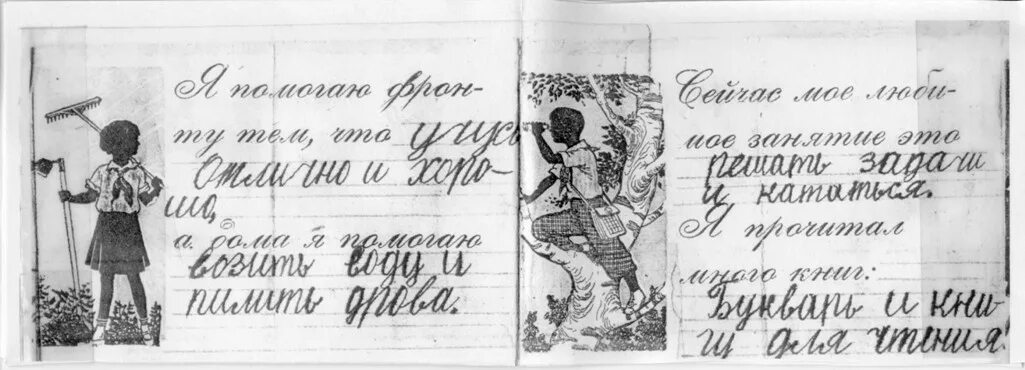 Я помогаю фрон-
ту тем, что учусь
Отлично и хоро-
шо,
а дома я помогаю
возить воду и
пилить дрова.
Сейчас мое люби-
мое занятие это
решать задачи
и кататься.
Я прочитал
много книг:
Букварь и кни-
гу для чтения.